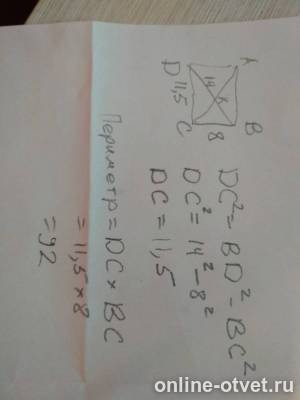 A B
14 8 8
D 11,5 C
DC² = BD² - BC²
DC² = 14² - 8²
DC = 11,5
Периметр = DC × BC
= 11,5 × 8
= 92
online-otvet.ru